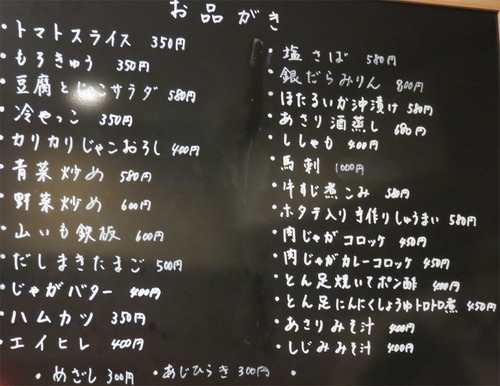 お品がき
・トマトスライス 350円
・もろきゅう 350円
・豆腐とじゃこサラダ 580円
・冷やっこ 350円
・カリカリじゃこおろし 400円
・青菜炒め 580円
・野菜炒め 600円
・山いも鉄板 600円
・だしまきたまご 500円
・じゃがバター 400円
・ハムカツ 350円
・エイヒレ 400円
・めざし 300円
・あじひらき 300円
・塩さば 580円
・銀だらみりん 800円
・ほたるいか沖漬け 580円
・あさり酒蒸し 680円
・ししゃも 400円
・馬刺 1000円
・牛すじ煮こみ 580円
・ホタテ入り手作りしゅうまい 580円
・肉じゃがコロッケ 450円
・肉じゃがカレーコロッケ 450円
・とん足焼いてポン酢 400円
・とん足にんにくしょうゆトロトロ煮 450円
・あさりみそ汁 400円
・しじみみそ汁 400円